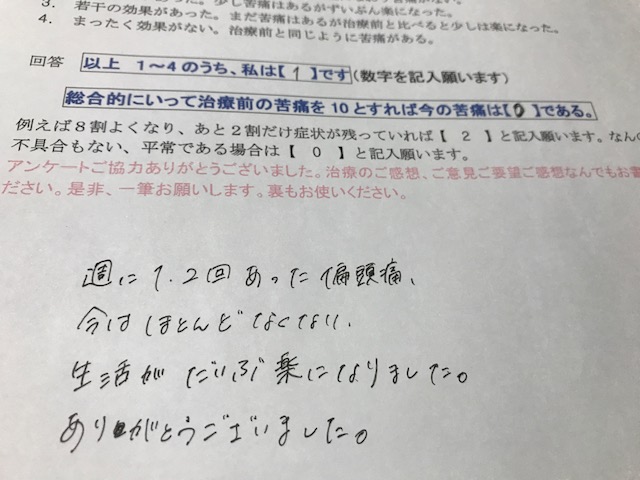 3. 若干の効果があった。まだ苦痛はあるが治療前と比べると少しは楽になった。
4. まったく効果がない。治療前と同じように苦痛がある。
回答 以上 1～4のうち、私は【 1 】です(数字を記入願います)
総合的にいって治療前の苦痛を10とすれば今の苦痛は【 0 】である。
例えば8割よくなり、あと2割だけ症状が残っていれば【 2 】と記入願います。なんの
不具合もない、平常である場合は【 0 】と記入願います。
アンケートご協力ありがとうございました。治療のご感想、ご意見ご要望ご感想なんでもお書
ださい。是非、一筆お願いします。裏もお使いください。
週に1.2回あった偏頭痛、
今はほとんどなくない、
生活がだいぶ楽になりました。
ありがとうございました。